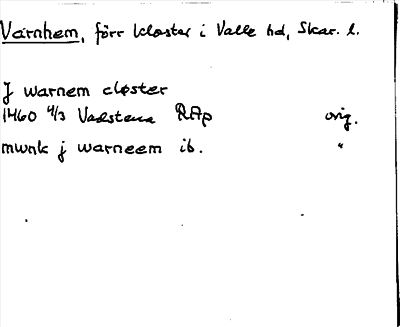 Varnhem, förr kloster i Valle hd, Skar. l.
J warnem closter
1460 4/3 Vadstena RAp orig.
mwnk j warneem ib. "